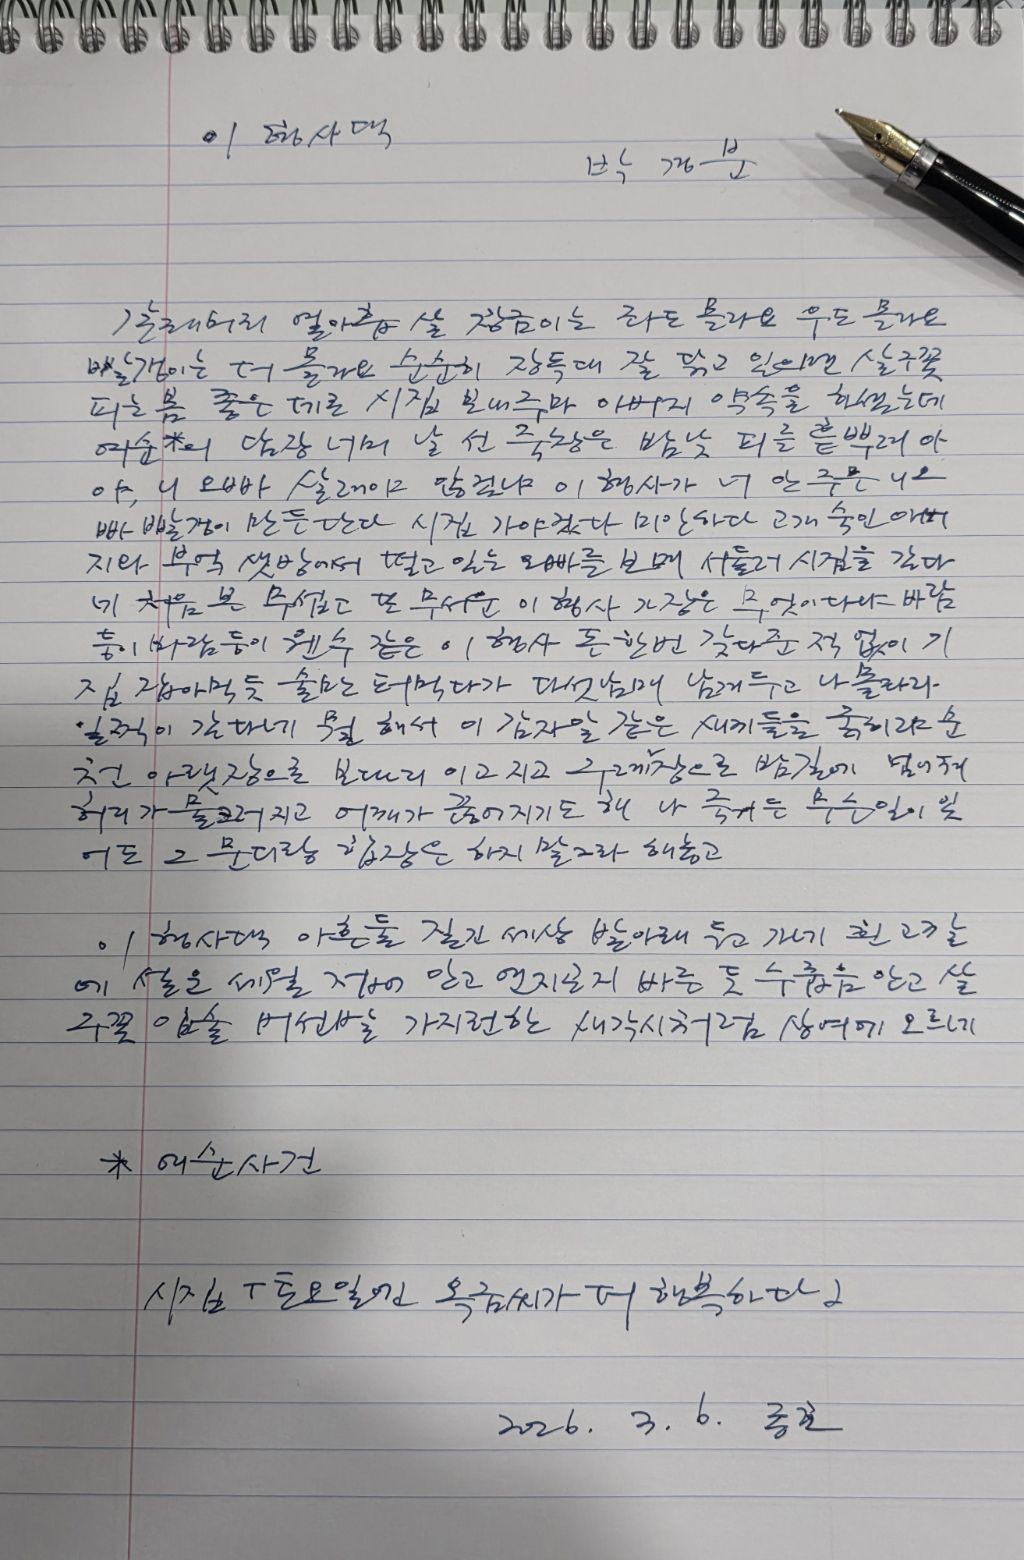 이 형사댁
박경분
갈래머리 열아홉 살 장금이는 좌도 몰라요 우도 몰라요
빨갱이는 더 몰라요 순순히 장독대 잘 닦고 있으면 살구꽃
피는 봄 좋은 데로 시집 보내주마 아버지 약속을 하셨는데
여순*의 담장 너머 날 선 죽창은 밤낮 피를 흩뿌려 아
야, 니 오빠 살려야 않겄냐 이 형사가 너 안 주믄 니 오
빠 빨갱이 만든단다 시집 가야겄다 미안하다 고개 숙인 아버
지와 부엌 샛방에서 떨고 있는 오빠를 보며 서둘러 시집을 갔다
네 처음 본 무섭고 또 무서운 이 형사 가장은 무엇이다냐 바람
둥이 바람둥이 웬수 같은 이 형사 돈 한번 갖다준 적 없이 기
집 잡아먹듯 술만 퍼먹다가 다섯 남매 남겨두고 나 몰라라
일찍이 갔다네 뭘 해서 이 감자알 같은 새끼들을 굶히랴 순
천 아랫장으로 보따리 이고 지고 구례장으로 밤길에 넘어져
허리가 물크러지고 어깨가 끊어지기도 해 나 죽거든 무슨 일이 있
어도 그 문디랑 합장은 하지 말그라 해놓고
이 형사댁 아흔둘 질긴 세상 발아래 두고 가네 흰 고무신
에 설운 세월 접어 안고 연지곤지 바른 듯 수줍음 안고 살
구꽃 입술 버선발 가지런한 새각시처럼 상여에 오르네
* 여순사건
시집 「토요일엔 옥금씨가 더 행복하다」
2026. 3. 6.